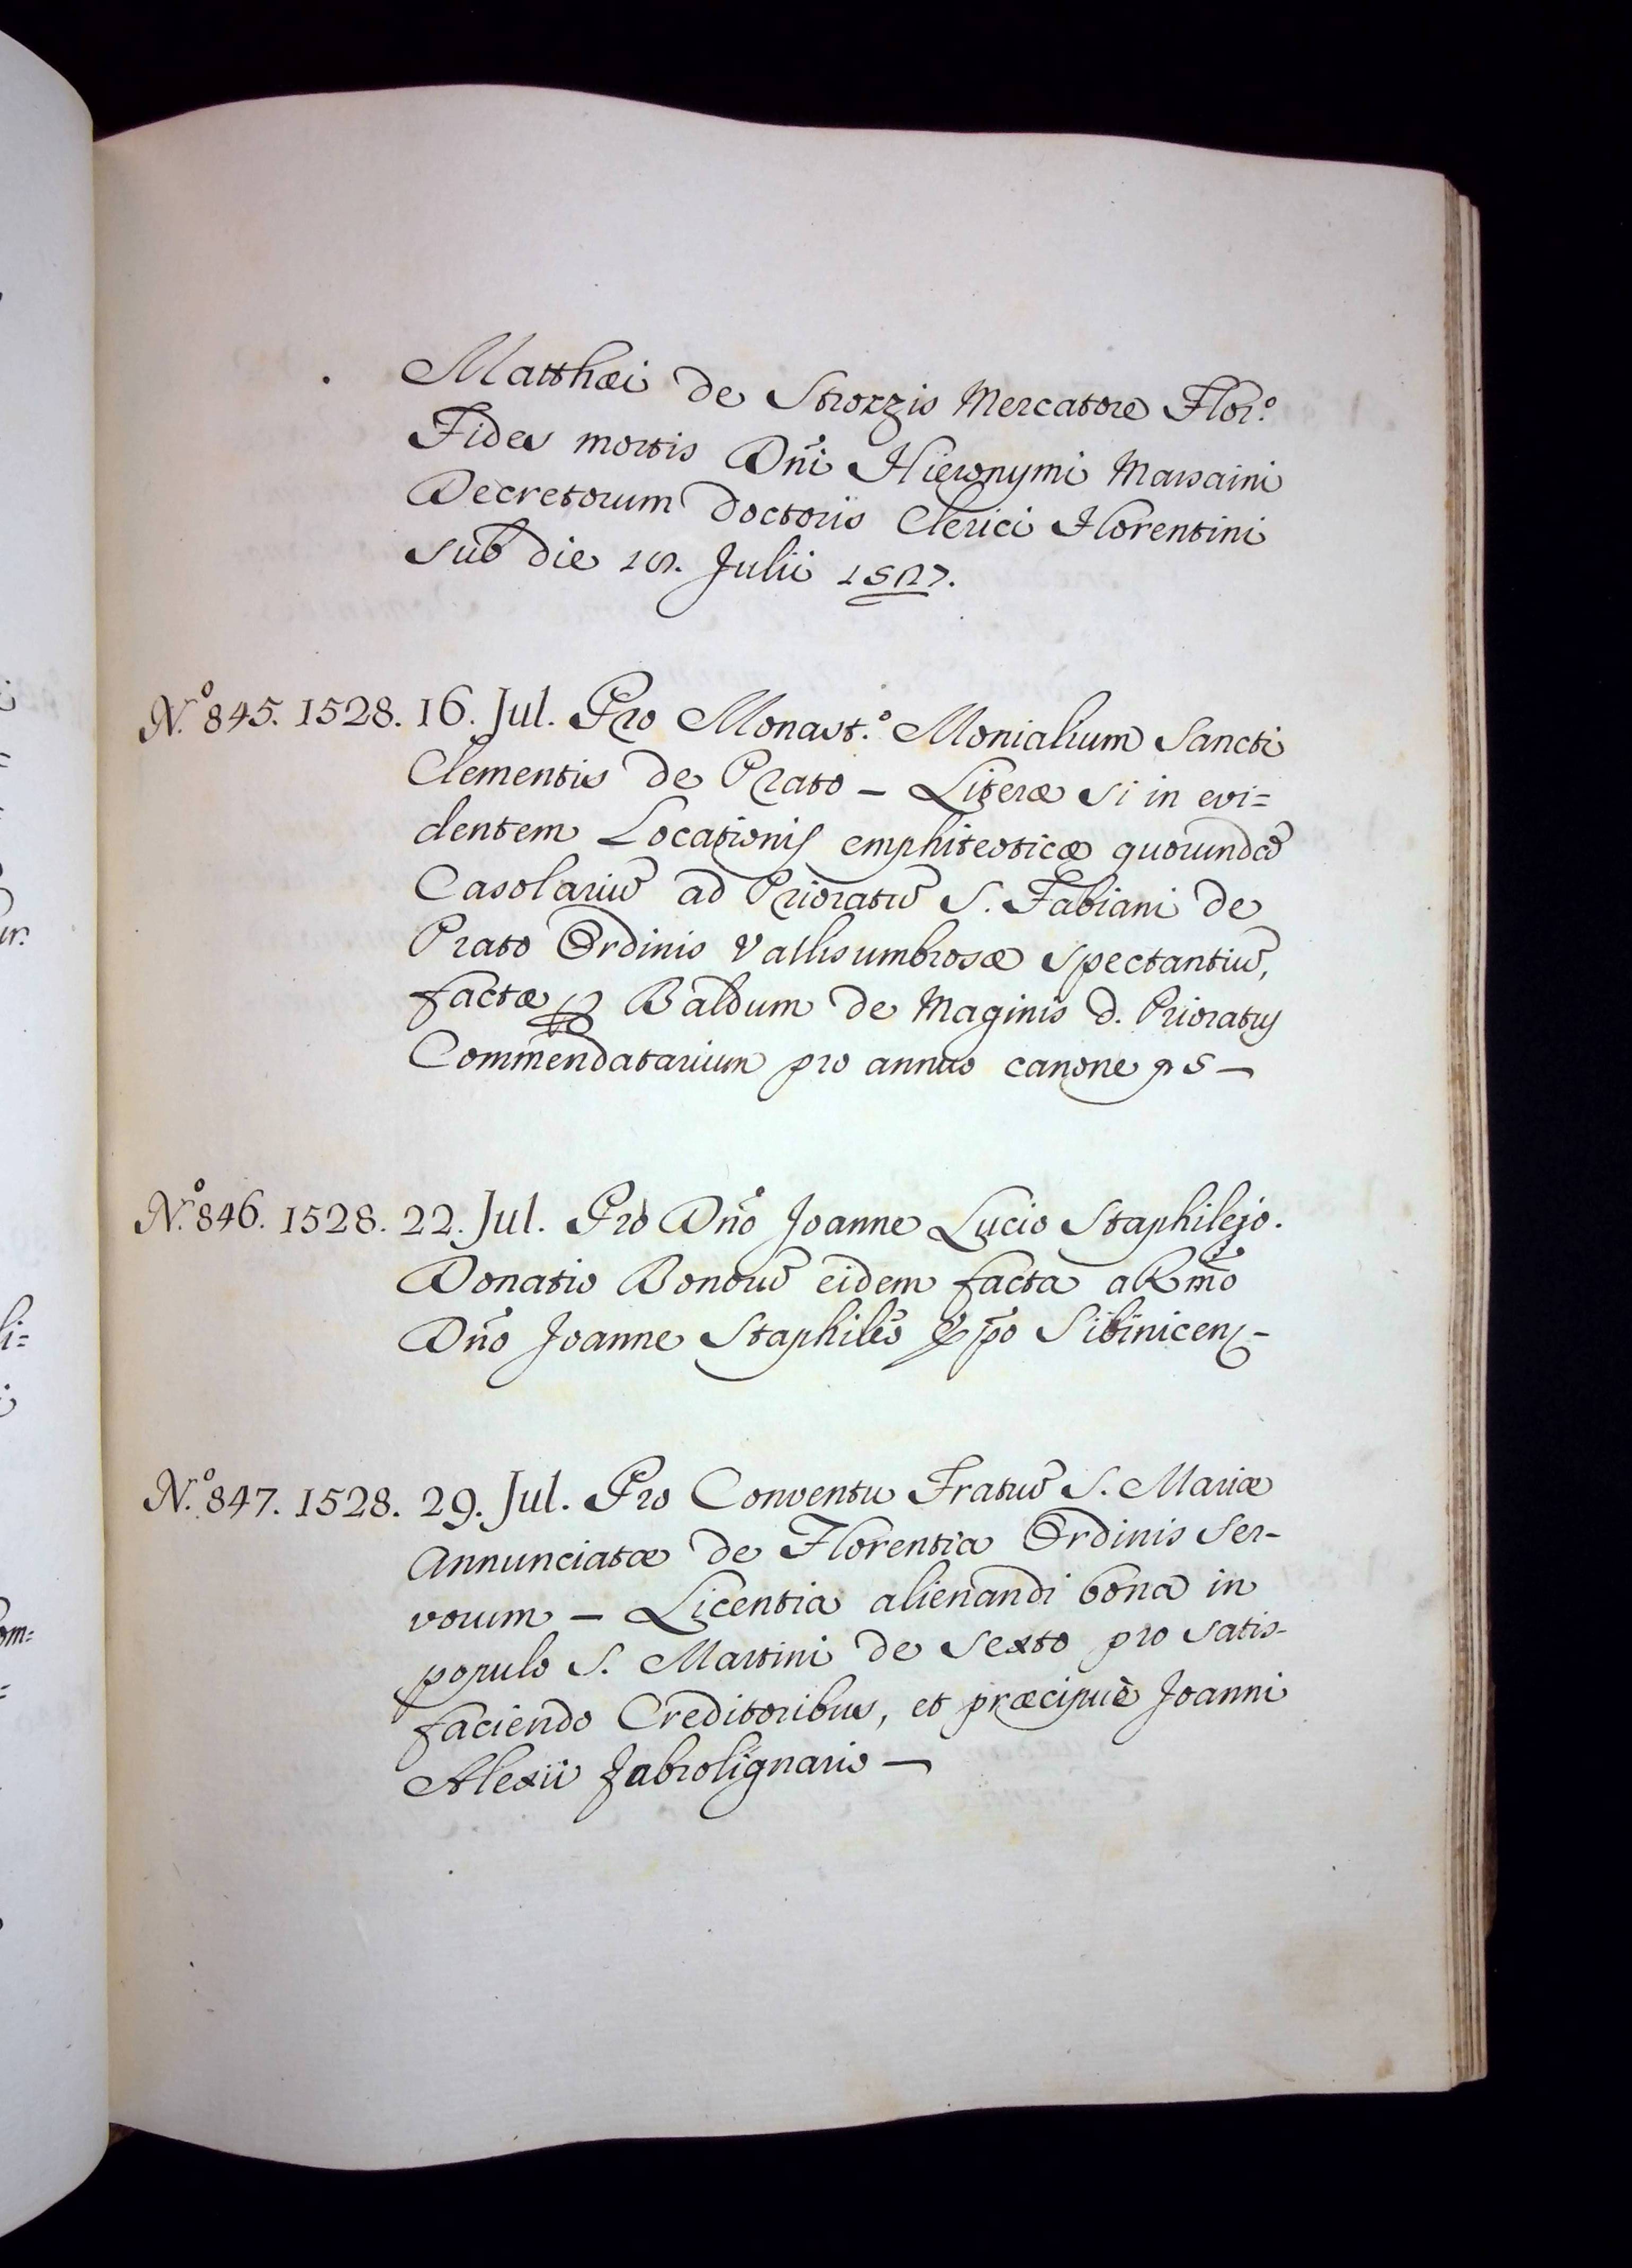 Matthæi de Strozzis Mercatore Flor.º
Fides mortis Dñi Hieronymi Marsaini
Decretorum Doctoris Clerici Florentini
sub die 18. Julii 1527.
N.º 845. 1528. 16. Jul. Pro Monast.º Monialium Sancti
Clementis de Prato – Literæ si in evi=
dentem Locationis emphiteoticæ quorundã
Casolariũ ad Prioratũ S. Fabiani de
Prato Ordinis Vallisumbrosæ spectantiũ,
factæ ꝑ Baldum de Maginis d. Prioratus
Commendatarium pro annuo canone 5 –
N.º 846. 1528. 22. Jul. Pro Dño Joanne Lucio Staphilejo.
Donatio Bonorũ eidem facta a Rm̃o
Dño Joanne Staphileo Ep̃o Sibinicens –
N.º 847. 1528. 29. Jul. Pro Conventu Fratrũ S. Mariæ
Annunciatæ de Florentia Ordinis Ser-
vorum – Licentia alienandi bona in
populo S. Martini de Sexto pro satis-
faciendo Creditoribus, et præcipuè Joanni
Alexii fabrolignario –